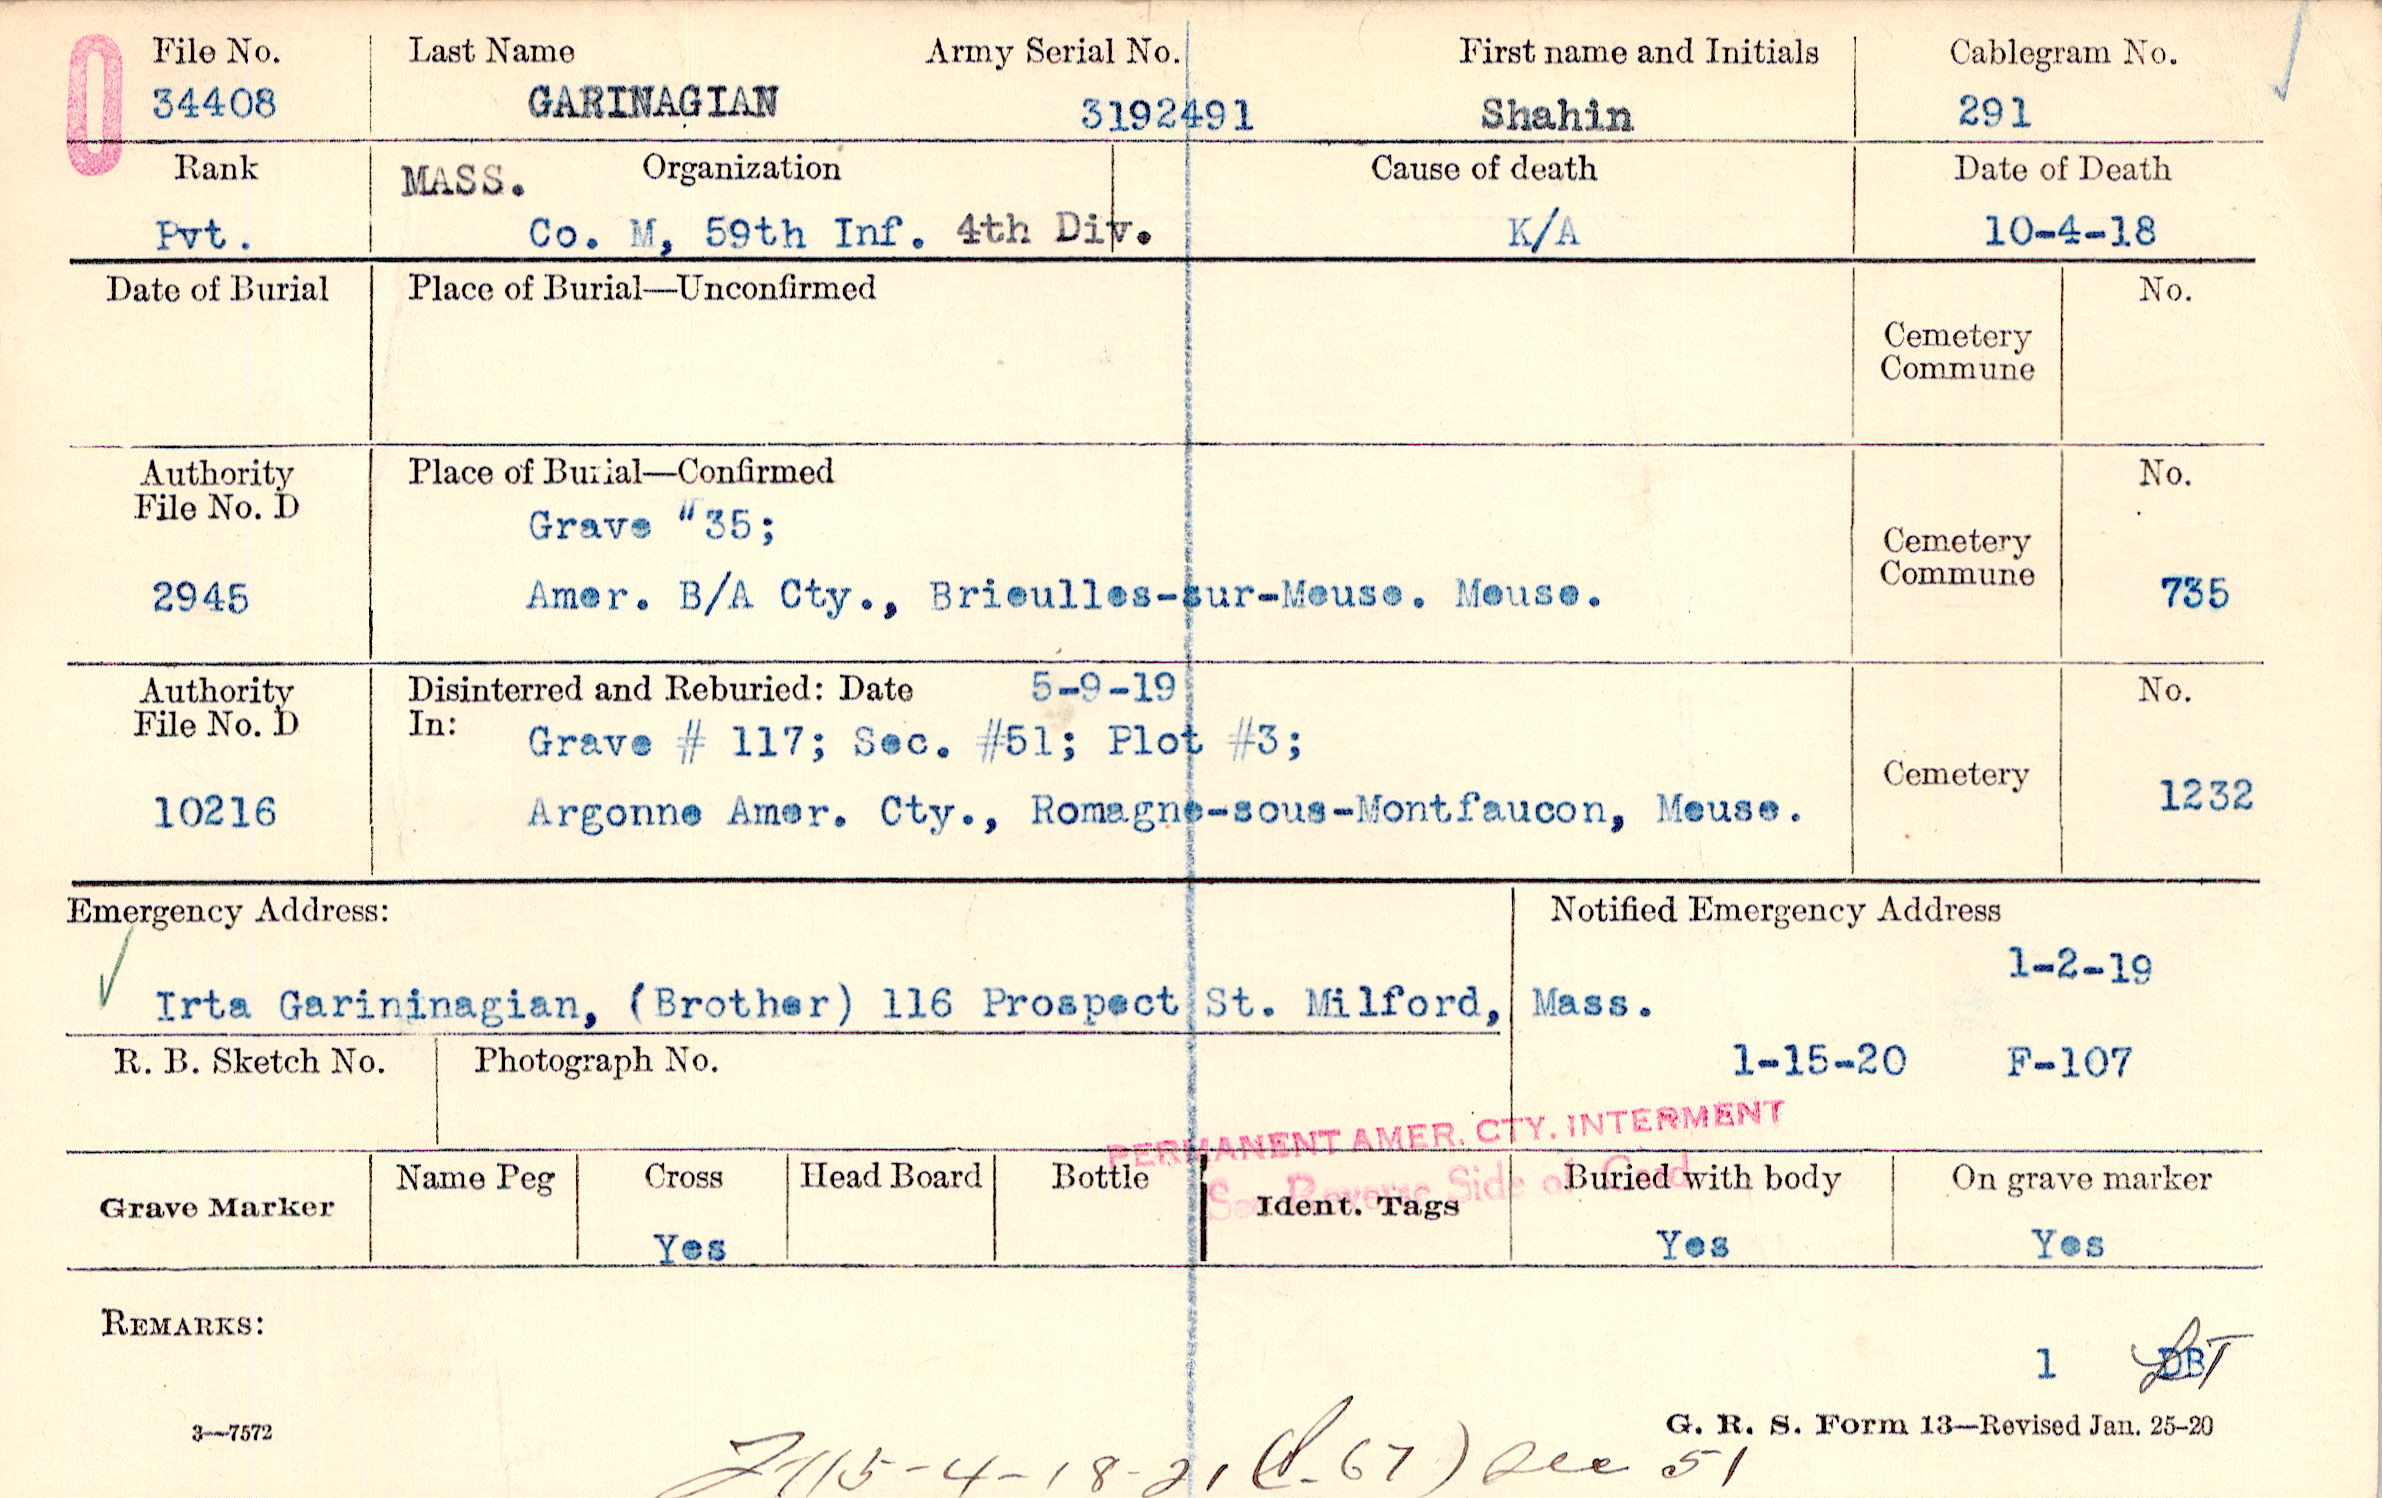 File No. Last Name Army Serial No. First name and Initials Cablegram No.
34408 GARINAGIAN 3192491 Shahin 291
Rank MASS. Organization Cause of death Date of Death
Pvt. Co. M, 59th Inf. 4th Div. K/A 10-4-18
Date of Burial Place of Burial—Unconfirmed No.
Cemetery
Commune
Authority Place of Burial—Confirmed No.
File No. D
Grave "35;
Cemetery
Commune
2945 Amer. B/A Cty., Brieulles-sur-Meuse. Meuse. 735
Authority Disinterred and Reburied: Date 5-9-19 No.
File No. D In: Grave # 117; Sec. #51; Plot #3;
Cemetery
10216 Argonne Amer. Cty., Romagne-sous-Montfaucon, Meuse. 1232
Emergency Address: Notified Emergency Address
1-2-19
Irta Garininagian, (Brother) 116 Prospect St. Milford, Mass.
R. B. Sketch No. Photograph No. 1-15-20 F-107
PERMANENT AMER. CTY. INTERMENT
See Reverse Side of Card
Grave Marker Name Peg Cross Head Board Bottle Ident. Tags Buried with body On grave marker
Yes Yes Yes
REMARKS:
1 DB
3—7572 G. R. S. Form 13—Revised Jan. 25-20
4-18-21 67) Sec 51